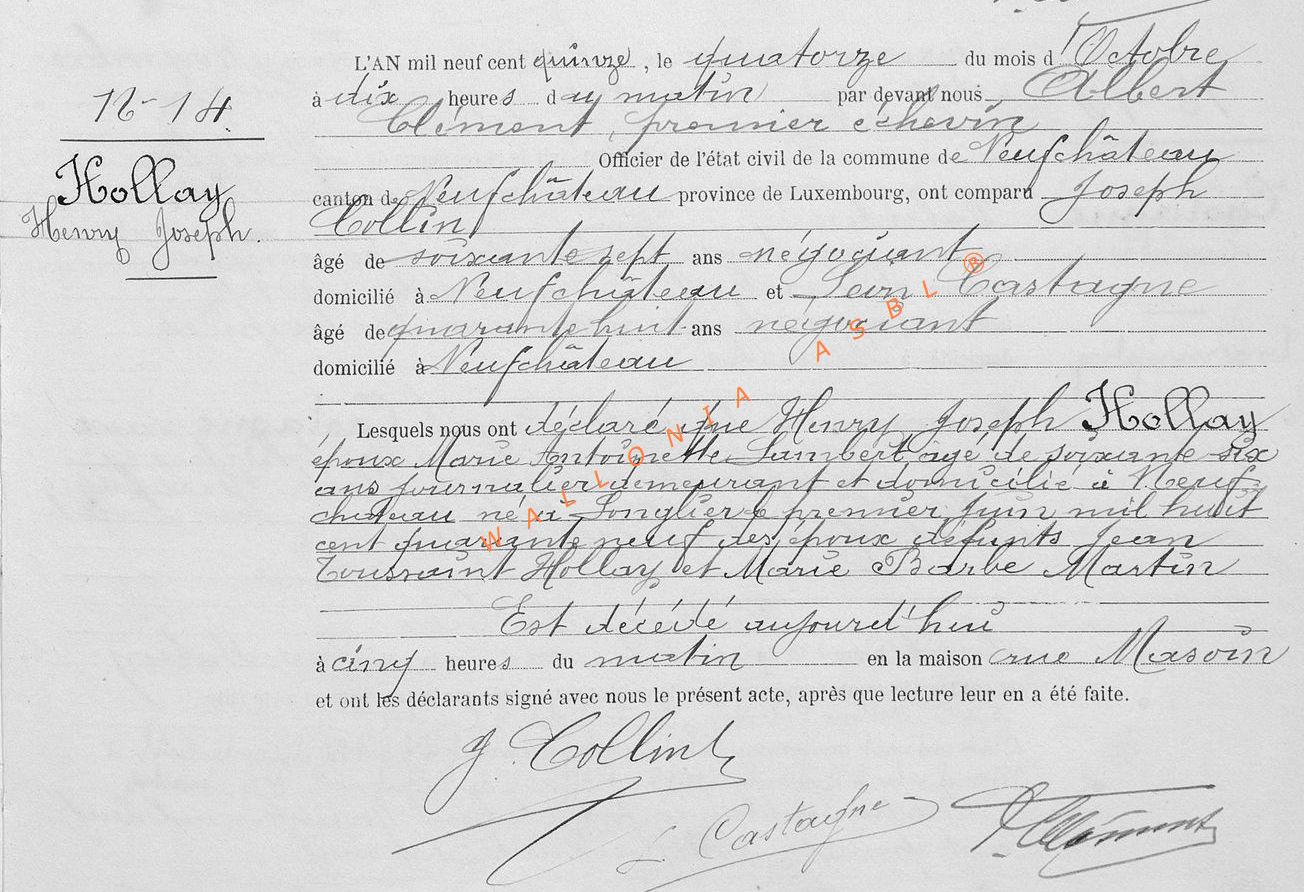 L'AN mil neuf cent quinze, le quatorze du mois d'Octobre
à dix heures du matin par devant nous Albert
Clément, premier échevin
Officier de l'état civil de la commune de Neufchâteau
canton de Neufchâteau province de Luxembourg, ont comparu Joseph
Collin
âgé de soixante sept ans négociant
domicilié à Neufchâteau et Léon Castagne
âgé de quarante huit ans négociant
domicilié à Neufchâteau
Lesquels nous ont déclaré que Henry Joseph Hollay
époux Marie Antoinette Lambert agé de soixante-six
ans journalier demeurant et domicilié à Neuf-
château né à Longlier le premier Juin mil huit
cent quarante neuf des époux défunts Jean
Toussaint Hollay et Marie Barbe Martin
Est décédé aujourd'hui
à cinq heures du matin en la maison rue
et ont les déclarants signé avec nous le présent acte, après que lecture leur en a été faite.
J. Collin
L Castagne
Clément
14
Hollay
Henry Joseph.
WALLONIA ASBL ®